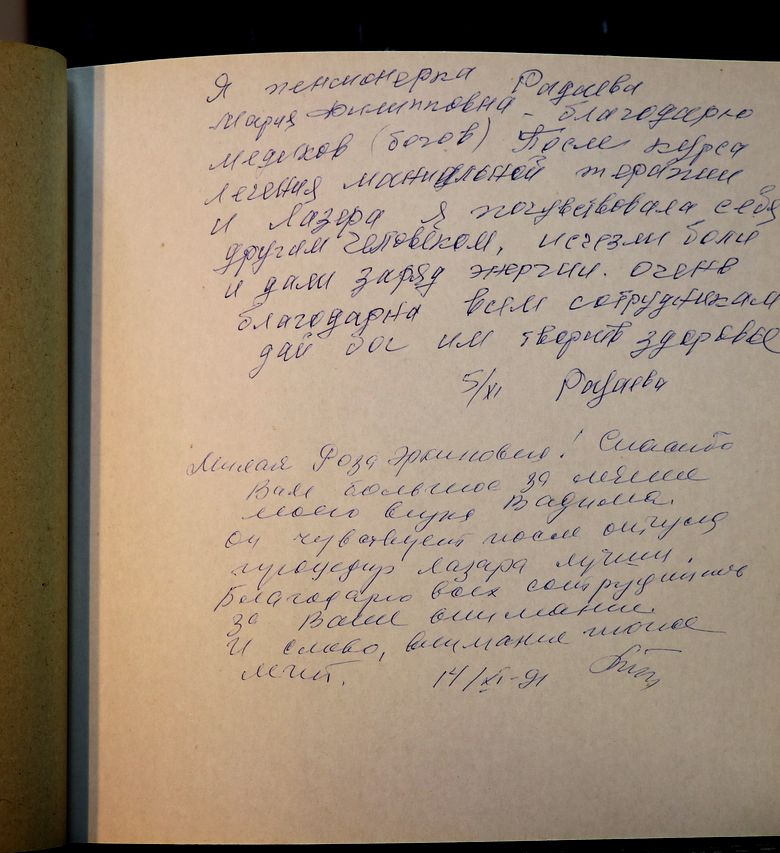 Я пенсионерка Радаева
Мария Филипповна - благодарю
медиков (богов) После курса
лечения мануальной терапии
и Лазера я почувствовала себя
другим человеком, исчезли боли
и дали заряд энергии. очень
благодарна всем сотрудникам
дай бог им творить здоровье
5/XI Радаева
Милая Роза Эркиновна! Спасибо
Вам большое за лечение
моего внука Вадима.
он чувствует после
процедур лазара лучше.
Благодарю всех сотрудников
за Ваше внимание.
И слово, внимание тоже
лечит. 14/XI-91